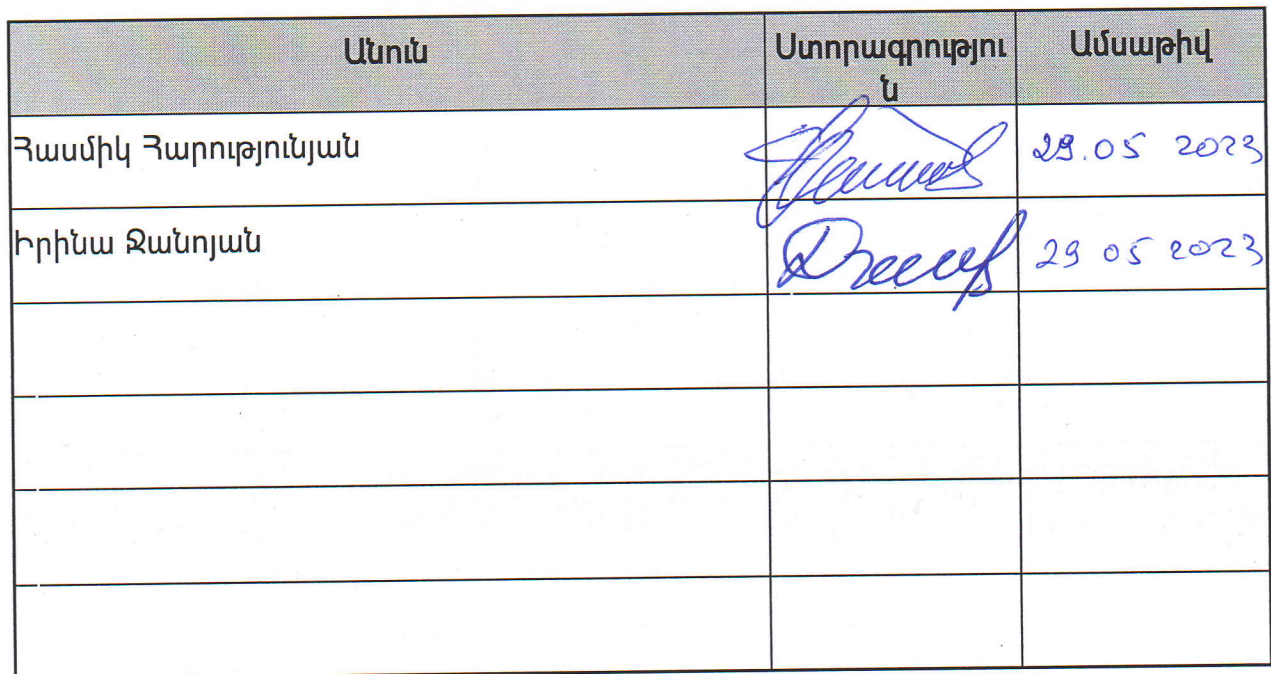 Անուն Ստորագրությու Ամսաթիվ
ն
Հասմիկ Հարությունյան 29.05 2023
Իրինա Ջանոյան 29 05 2023